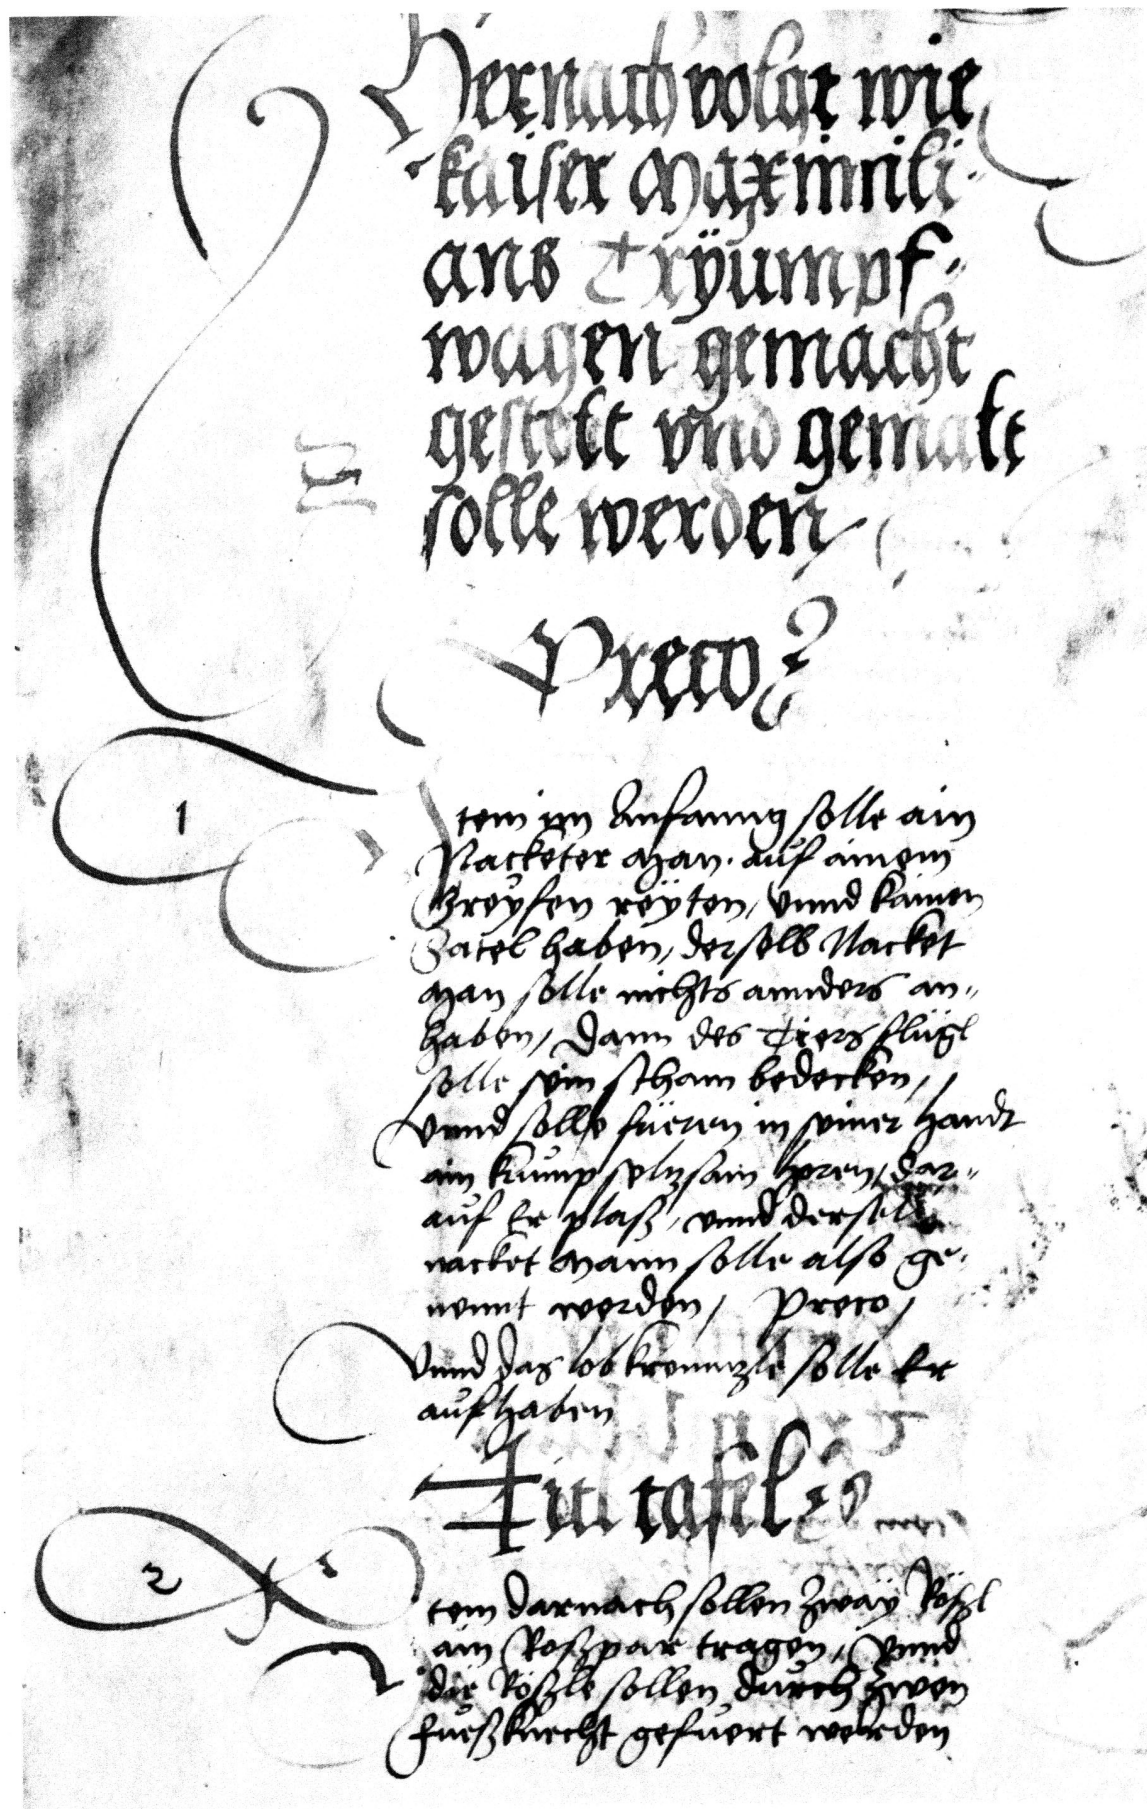 Hernach volgt wie
kaiser Maximili-
ans Tryumpf-
wagen gemacht
gestelt vnd gemalt
solle werden
Preco
1
Item im Anfanng solle ain
Nacketer Man. auf ainem
Greyfen reyten, vnnd kainen
Satel haben, derselb Nacket
Man solle nichts annders an-
haben, dann des Tiers flügl
solle sein scham bedecken,
vnnd solle füeren in seiner handt
ain krump seltzsam horen, dar-
auf Er plasz, vnnd derselb
nacket Mann solle also ge-
nennt werden, Preco,
vnnd das lobkrenntzle solle Er
aufhaben
Titl tafel
2
Item darnach sollen zway Röszl
ain Roszpar tragen, vnnd
die Röszle sollen durch zwen
fueszknecht gefuert werden